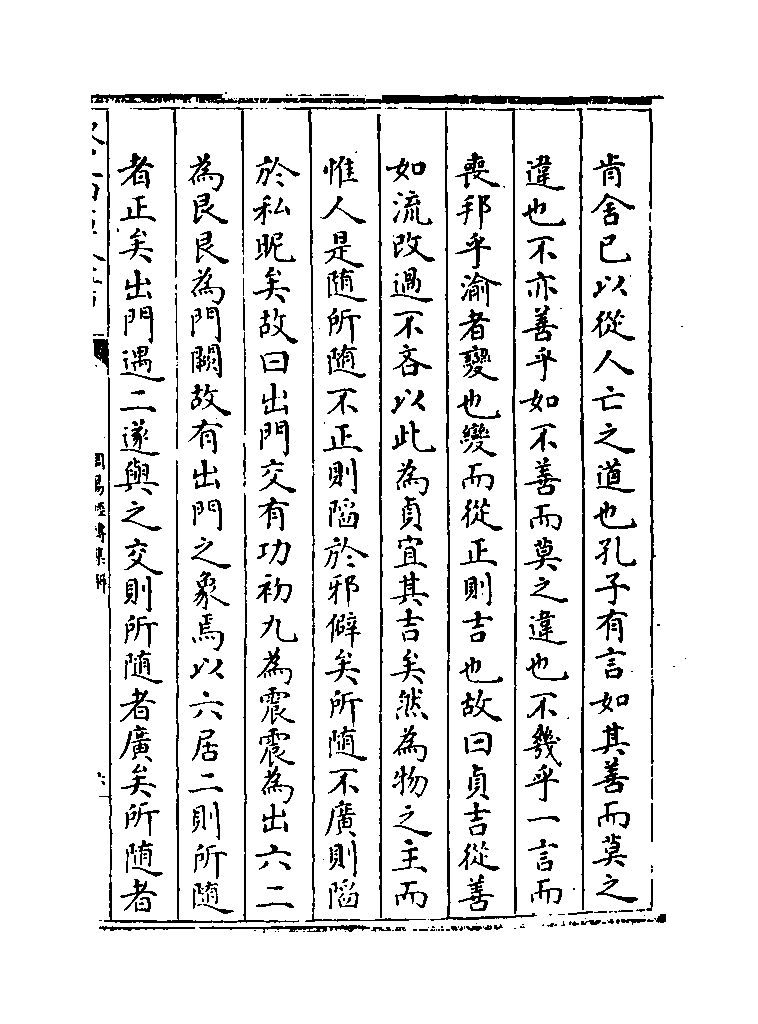 肯舍已以從人亡之道也孔子有言如其善而莫之
違也不亦善乎如不善而莫之違也不幾乎一言而
喪邦乎渝者變也變而從正則吉也故曰貞吉從善
如流改過不吝以此為貞宜其吉矣然為物之主而
惟人是随所随不正則陷於邪僻矣所随不廣則陷
於私昵矣故曰出門交有功初九為震震為出六二
為艮艮為門闕故有出門之象焉以六居二則所随
者正矣出門遇二遂與之交則所随者廣矣所随者
周易經傳集解